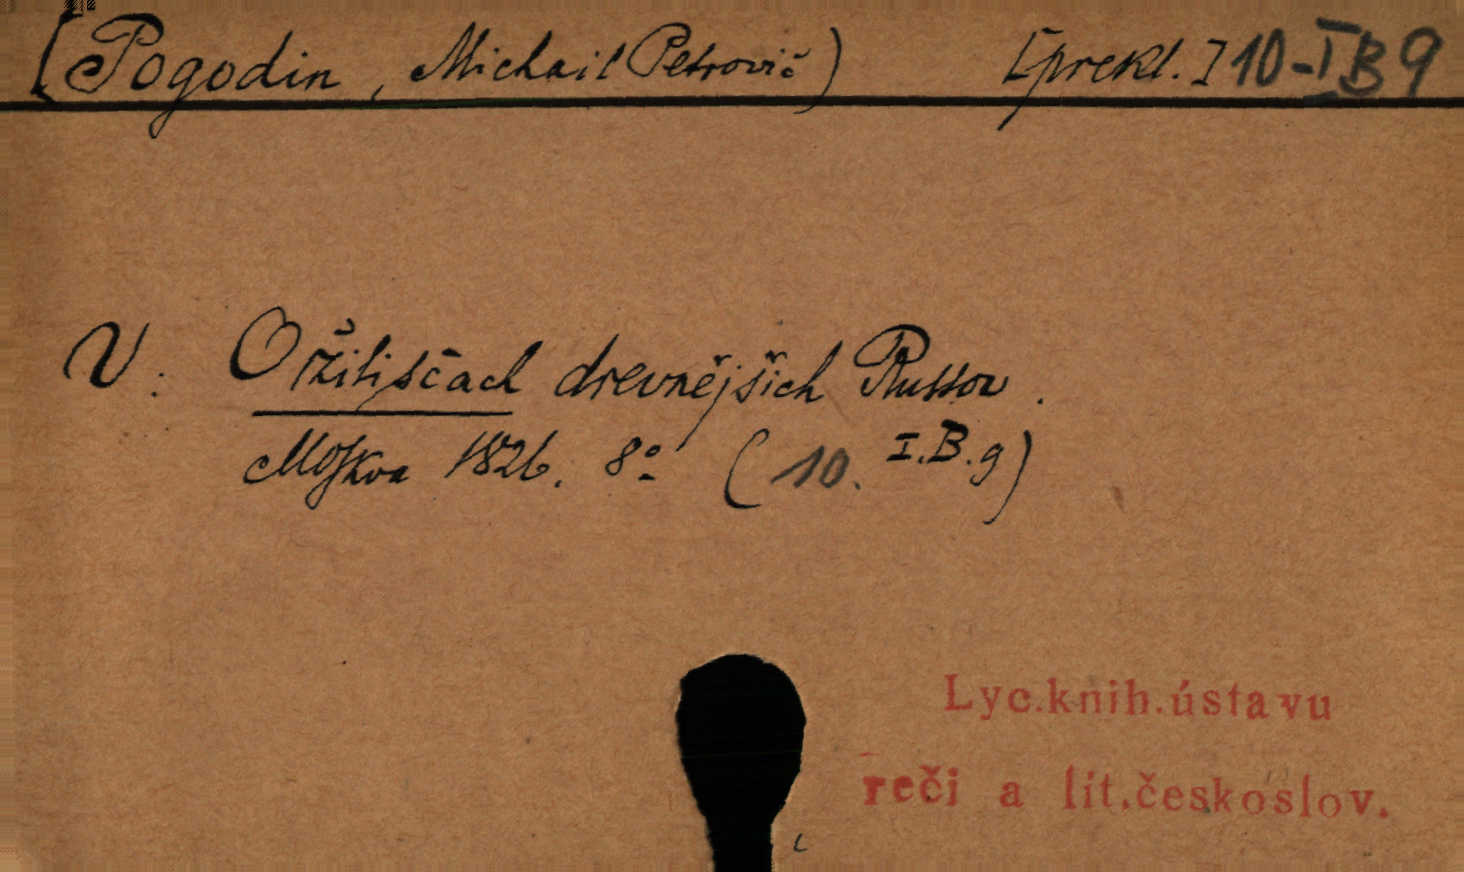 (Pogodin, Michail Petrovič) [prekl.] 10-I B 9
V: O žiliščach drevnějších Russov.
Moskva 1826. 8° (10. I.B.9)
Lyc.knih.ústavu
reči a lit.českoslov.